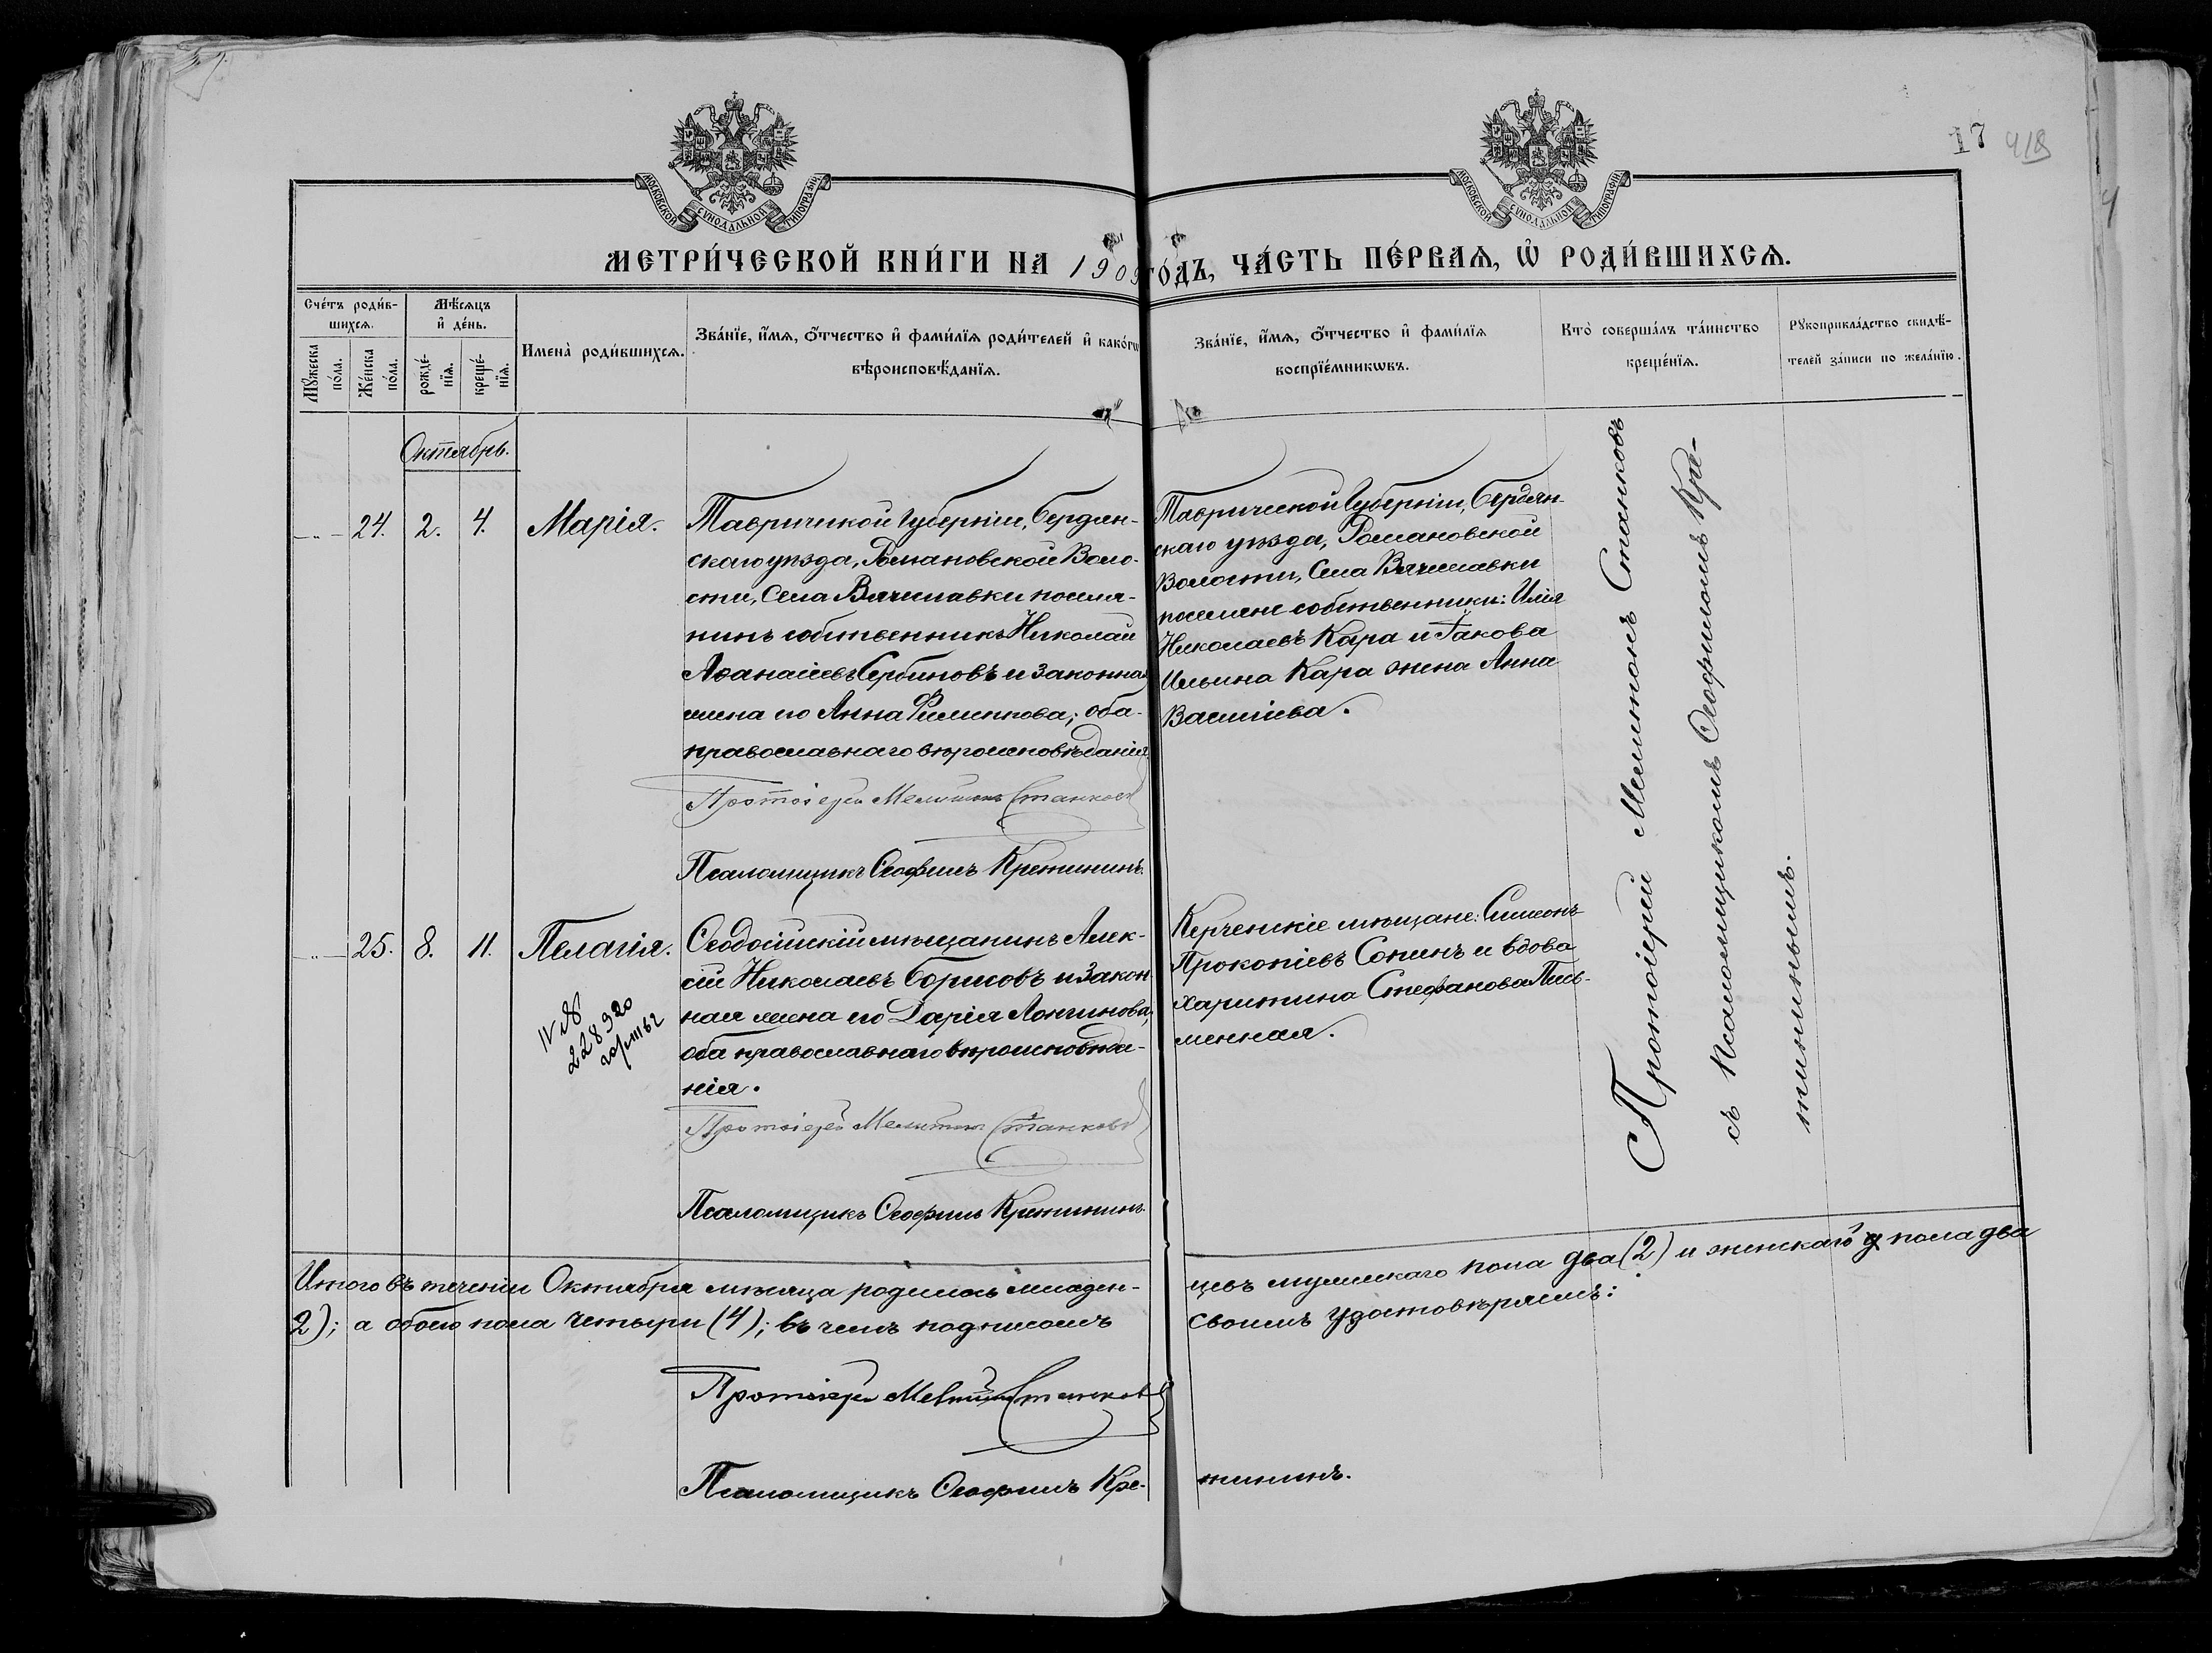 17 418
МОСКОВСКОЙ СѴНОДАЛЬНОЙ ТИПОГРАФІИ
МОСКОВСКОЙ СѴНОДАЛЬНОЙ ТИПОГРАФІИ
МЕТРИ́ЧЕСКОЙ КНИ́ГИ НА 1909 ГО́ДЪ, ЧА́СТЬ ПЕ́РВАЯ, Ѿ РОДИ́ВШИХСѦ.
Сче́тъ роди́в-
шихсѧ.
Мѣ́сѧцъ
и҆ де́нь.
Мꙋ́жеска
по́ла.
Же́нска
по́ла.
рожде́-
нїѧ.
креще́-
нїѧ.
Имена̀ роди́вшихсѧ.
Зва́нїе, и҆́мѧ, ѻ҆́тчество и҆ фами́лїѧ роди́телей и҆ како́гѡ
вѣроисповѣ́данїѧ.
Зва́нїе, и҆́мѧ, ѻ҆́тчество и҆ фами́лїѧ
воспрїе́мникѡвъ.
Кто̀ соверша́лъ та́инство
креще́нїѧ.
Рꙋкоприкла́дство свидѣ́-
телей за́писи по жела́нїю.
Октябрь.
24. 2. 4. Марія.
Таврической Губерніи, Бердян-
скаго уѣзда, Романовской Воло-
сти, Села Вячеславки поселя-
нинъ собственникъ Николай
Аѳанасіевъ Сербиновъ и законная
жена его Анна Филиппова; оба
православнаго вѣроисповѣданія.
Протоіерей Мелитонъ Станковъ
Псаломщикъ Ѳеофилъ Кретининъ.
Таврической Губерніи, Бердян-
скаго уѣзда, Романовской
Волости, Села Вячеславки
поселяне собственники: Илія
Николаевъ Кара и Іакова
Ильина Кара жена Анна
Василіева.
25. 8. 11. Пелагія.
IV АП
228920
Ѳеодосійскій мѣщанинъ Алек-
сій Николаевъ Борисовъ и закон-
ная жена его Дарія Лонгинова;
оба православнаго вѣроисповѣда-
нія.
Протоіерей Мелитонъ Станковъ
Псаломщикъ Ѳеофилъ Кретининъ.
Керченскіе мѣщане: Симеонъ
Прокопіевъ Сопинъ и вдова
Харитина Стефанова Пись-
менная.
Протоіерей Мелитонъ Станковъ
съ Псаломщикомъ Ѳеофиломъ Кре-
тининымъ.
Итого въ теченіи Октября мѣсяца родилось младен-
цевъ мужескаго пола два (2) и женскаго пола два
2); а обоего пола четыри (4); въ чемъ подписомъ
своимъ удостовѣряемъ:
Протоіерей Мелитонъ Станковъ
Псаломщикъ Ѳеофилъ Кре-
тининъ.